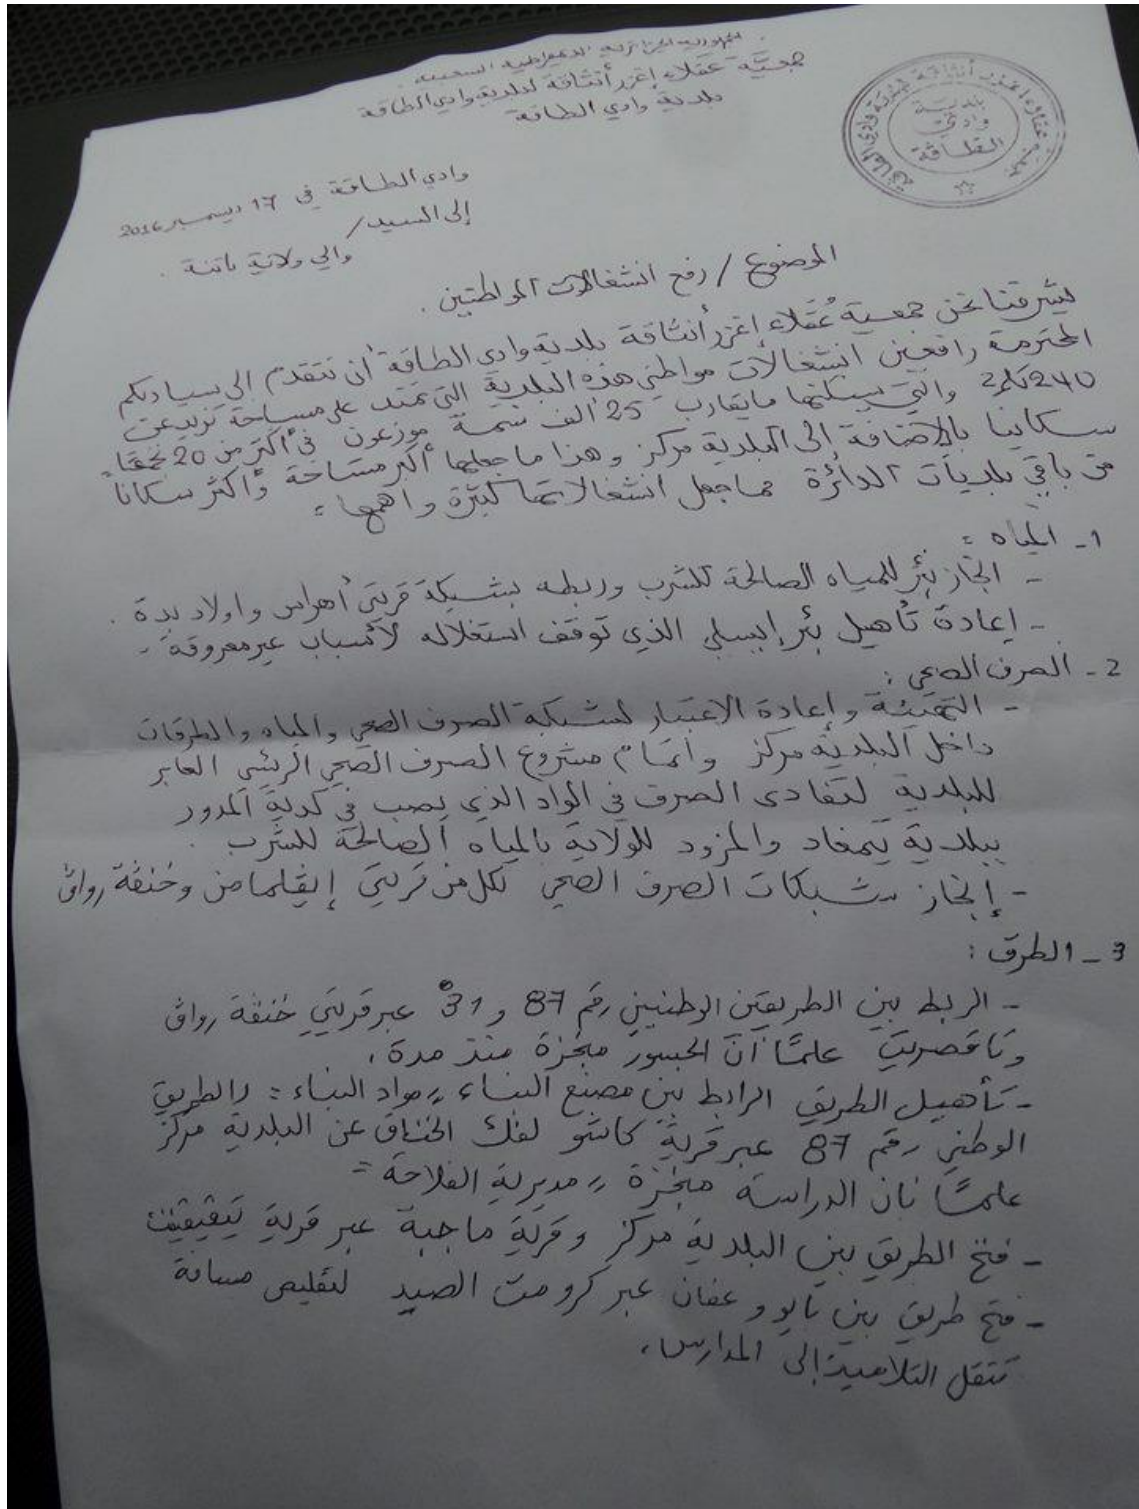 الجمهورية الجزائرية الديمقراطية الشعبية
جمعية عقلاء إغزر أنثاقة لبلدية وادي الطاقة
بلدية وادي الطاقة
بلدية
وادي
الطاقة
وادي الطاقة في 17 ديسمبر 2016
إلى السيد/
والي ولاية باتنة .
الموضوع / رفع انشغالات المواطنين .
يشرفنا نحن جمعية عُقلاء إغزر أنثاقة بلدية وادي الطاقة أن نتقدم إلى سيادتكم
المحترمة رافعين انشغالات مواطني هذه البلدية التي تمتد على مساحة تزيد عن
240 كم2 والتي يسكنها ما يقارب 25 ألف نسمة موزعون في أكثر من 20 تجمعا
سكانيا بالإضافة إلى البلدية مركز وهذا ما جعلها أكبر مساحة وأكثر سكانا
من باقي بلديات الدائرة مما جعل انشغالاتها كثيرة وأهمها :
1 - المياه :
- انجاز بئر للمياه الصالحة للشرب وربطه بشبكة قريتي أهراس واولاد بدة .
- إعادة تأهيل بئر إيسلي الذي توقف استغلاله لأسباب غير معروفة .
2 - الصرف الصحي :
- التهيئة وإعادة الاعتبار لشبكة الصرف الصحي والمياه والطرقات
داخل البلدية مركز واتمام مشروع الصرف الصحي الرئسي العابر
للبلدية لتفادى الصرف في الواد الذي يصب في كدية المدور
ببلدية تيمقاد والمزود للولاية بالمياه الصالحة للشرب .
- إنجاز شبكات الصرف الصحي لكل من قريتي إيقلمامن وخنقة رواق
3 - الطرق :
- الربط بين الطريقين الوطنيين رقم 87 و 31 عبر قريتي خنقة رواق
وتاقصريت علمًا أنّ الجسور منجزة منذ مدة .
- تأهيل الطريق الرابط بين مصنع البناء "مواد البناء" والطريق
الوطني رقم 87 عبر قرية كاستو لفك الخناق عن البلدية مركز
علمًا بان الدراسة منجزة "مديرية الفلاحة"
- فتح الطريق بين البلدية مركز وقرية ماجبة عبر قرية
- فتح طريق بين تابو وعفان عبر كرومت الصيد لتقليص مسافة
تنقل التلاميذ إلى المدارس .